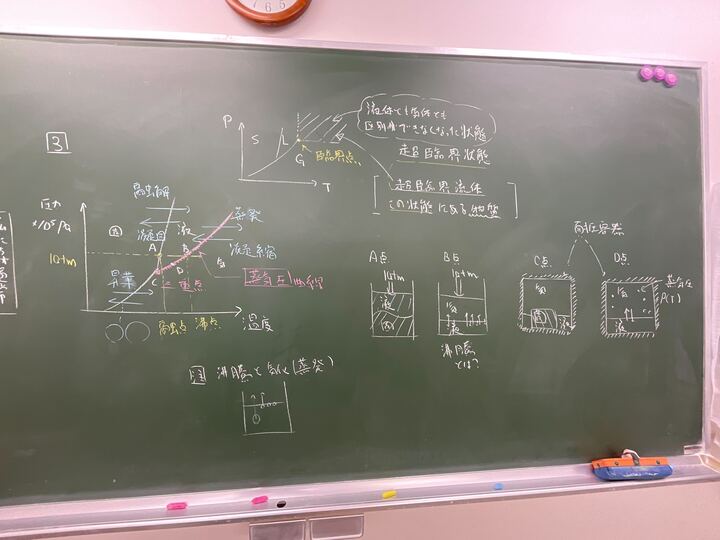 3
P
S
L
G
臨界点
T
液体とも気体とも
区別ができなくなった状態
超臨界状態
超臨界流体
この状態にある物質
圧力
×10⁵/Pa
1atm
融解
凝固
固
液
蒸発
凝縮
気
昇華
A
B
C
D
三重点
蒸気圧曲線
融点
沸点
温度
A点
1atm
液
固
B点
1atm
気
液
沸騰
とは?
C点
気
固
液
耐圧容器
D点
気
液
蒸気圧
P(T)
注 沸騰と気化(蒸発)